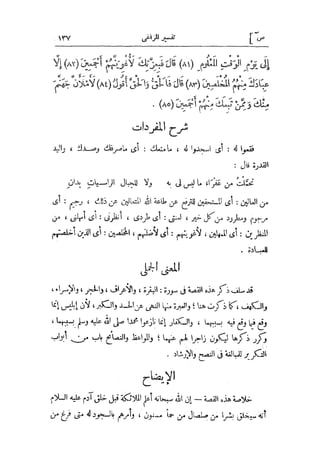 ص~ ] تفسير المراغى ١٣٧
إِلَى يَوْمِ الْوَقْتِ الْمَعْلُومِ (٨١) قَالَ فَبِعِزَّتِكَ لَأُغْوِيَنَّهُمْ أَجْمَعِينَ (٨٢) إِلَّا
عِبَادَكَ مِنْهُمُ الْمُخْلَصِينَ (٨٣) قَالَ فَالْحَقُّ وَالْحَقَّ أَقُولُ (٨٤) لَأَمْلَأَنَّ جَهَنَّمَ
مِنْكَ وَمِمَّنْ تَبِعَكَ مِنْهُمْ أَجْمَعِينَ (٨٥) .
شرح المفردات
فقعوا له : أى اسجدوا له ، مامنعك : أى ماصرفك وصدك ، واليد
القدرة قال :
تحمّلتُ من عفراء ما ليس لى به ولا للجبال الراسيات يدان
من العالين : أى المستحقين للترفع عن طاعة الله المتعالين عن ذلك ، رجيم : أى
مرجوم ومطرود من كل خير ، لعنتى : أى طردى ، أنظرنى : أى أمهلنى ، من
المنظرين : أى الممهلين ، لأغوينهم : أى لأضلنهم ، المخلصين : أى الذين أخلصتهم
للعبادة .
المعنى الجملى
قد سلف ذكر هذه القصة فى سورة : البقرة ، والأعراف ، والحجر ، والإسراء ،
والكهف ، كما ذكرت هنا ؛ والعبرة منها النهى عن الحسد والكبر ، لأن إبليس إنما
وقع فيما وقع فيه بسببهما ، والكفار إنما نازعوا محمدا صلى الله عليه وسلم بسببهما ،
وكرر ذكرها ليكون زاجرا لهم عنهما ؛ والمواعظ والنصائح باب من أبواب
التكرير للمبالغة فى النصح والإرشاد .
الإيضاح
خلاصة هذه القصة — إن الله سبحانه أعلم الملائكة قبل خلق آدم عليه السلام
أنه سيخلق بشرا من صلصال من حمأ مسنون ، وأمرهم بالسجود له متى فرغ من